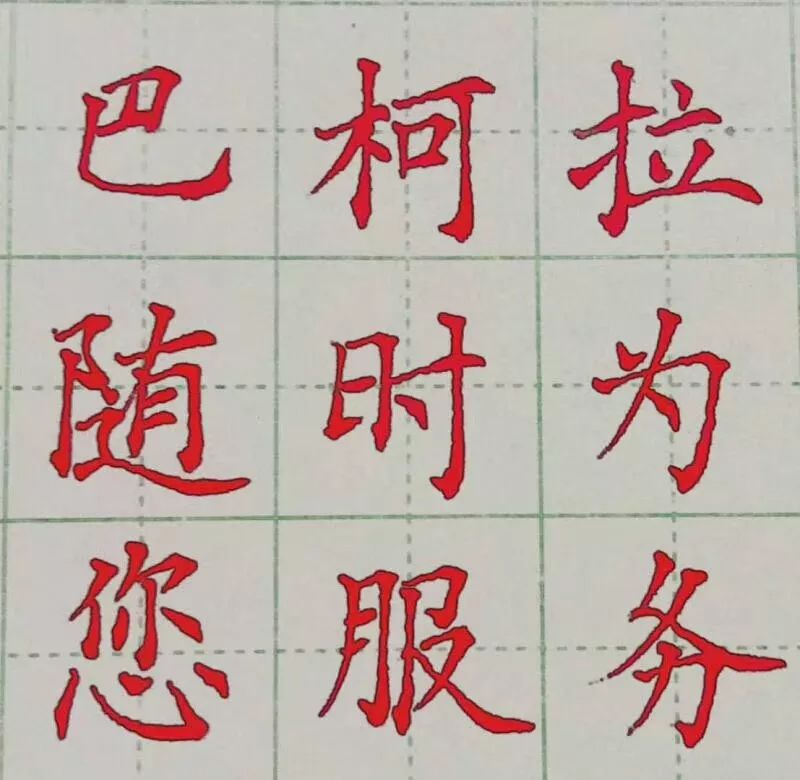 巴柯拉
随时为
您服务